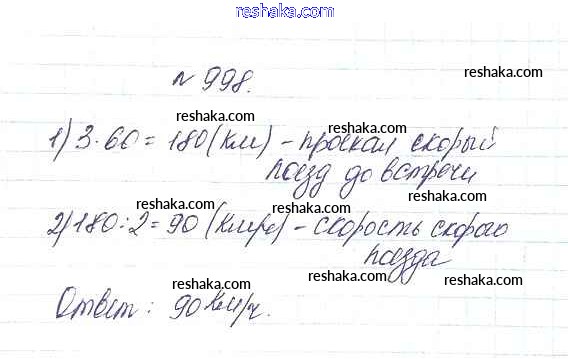 reshaka.com
N 998.
reshaka.com
reshaka.com
reshaka.com
1) 3·60 = 180 (км) - проехал скорый
поезд до встречи
reshaka.com
reshaka.com
2) 180:2 = 90 (км/ч) - скорость скорого
поезда
reshaka.com
reshaka.com
Ответ: 90 км/ч.
reshaka.com
reshaka.com